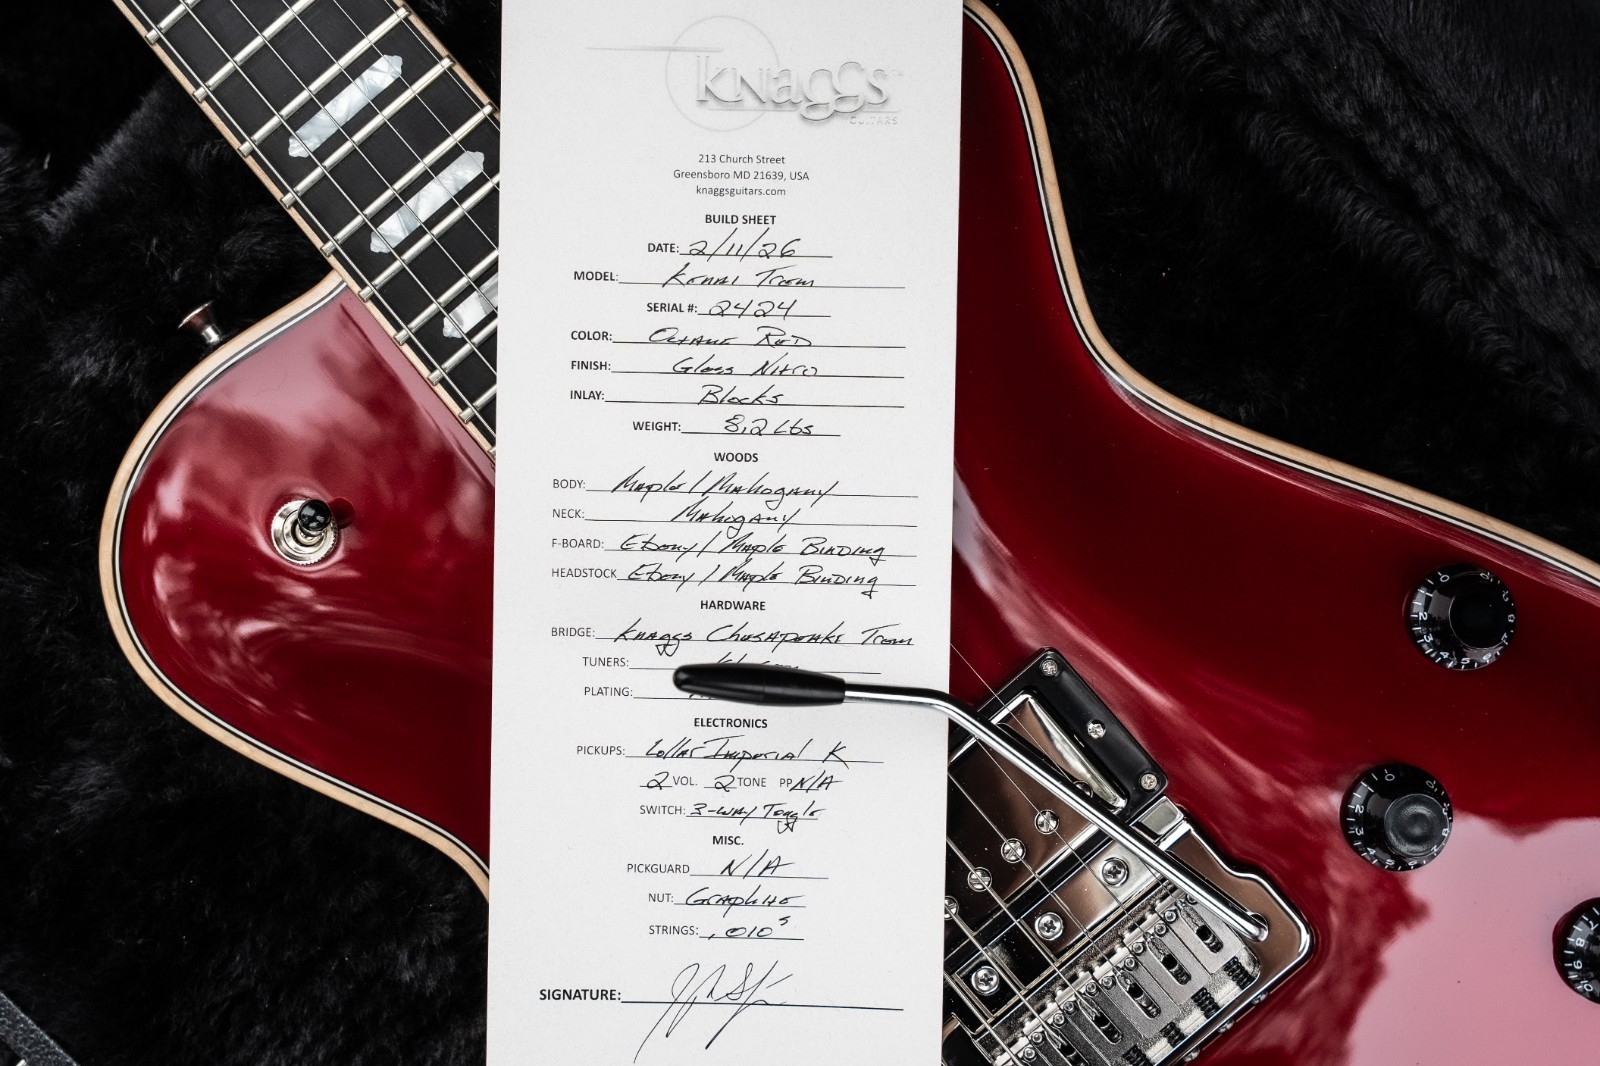 Knaggs
GUITARS
213 Church Street
Greensboro MD 21639, USA
knaggsguitars.com
BUILD SHEET
DATE: 2/11/26
MODEL: Kenai Trem
SERIAL #: 2424
COLOR: Octane Red
FINISH: Gloss Nitro
INLAY: Blocks
WEIGHT: 8.2 Lbs
WOODS
BODY: Maple / Mahogany
NECK: Mahogany
F-BOARD: Ebony / Maple Binding
HEADSTOCK Ebony / Maple Binding
HARDWARE
BRIDGE: Knaggs Chesapeake Trem
TUNERS:
PLATING:
ELECTRONICS
PICKUPS: Lollar Imperial K
2 VOL. 2 TONE PP N/A
SWITCH: 3-way Toggle
MISC.
PICKGUARD N/A
NUT: Graphite
STRINGS: .010s
SIGNATURE: